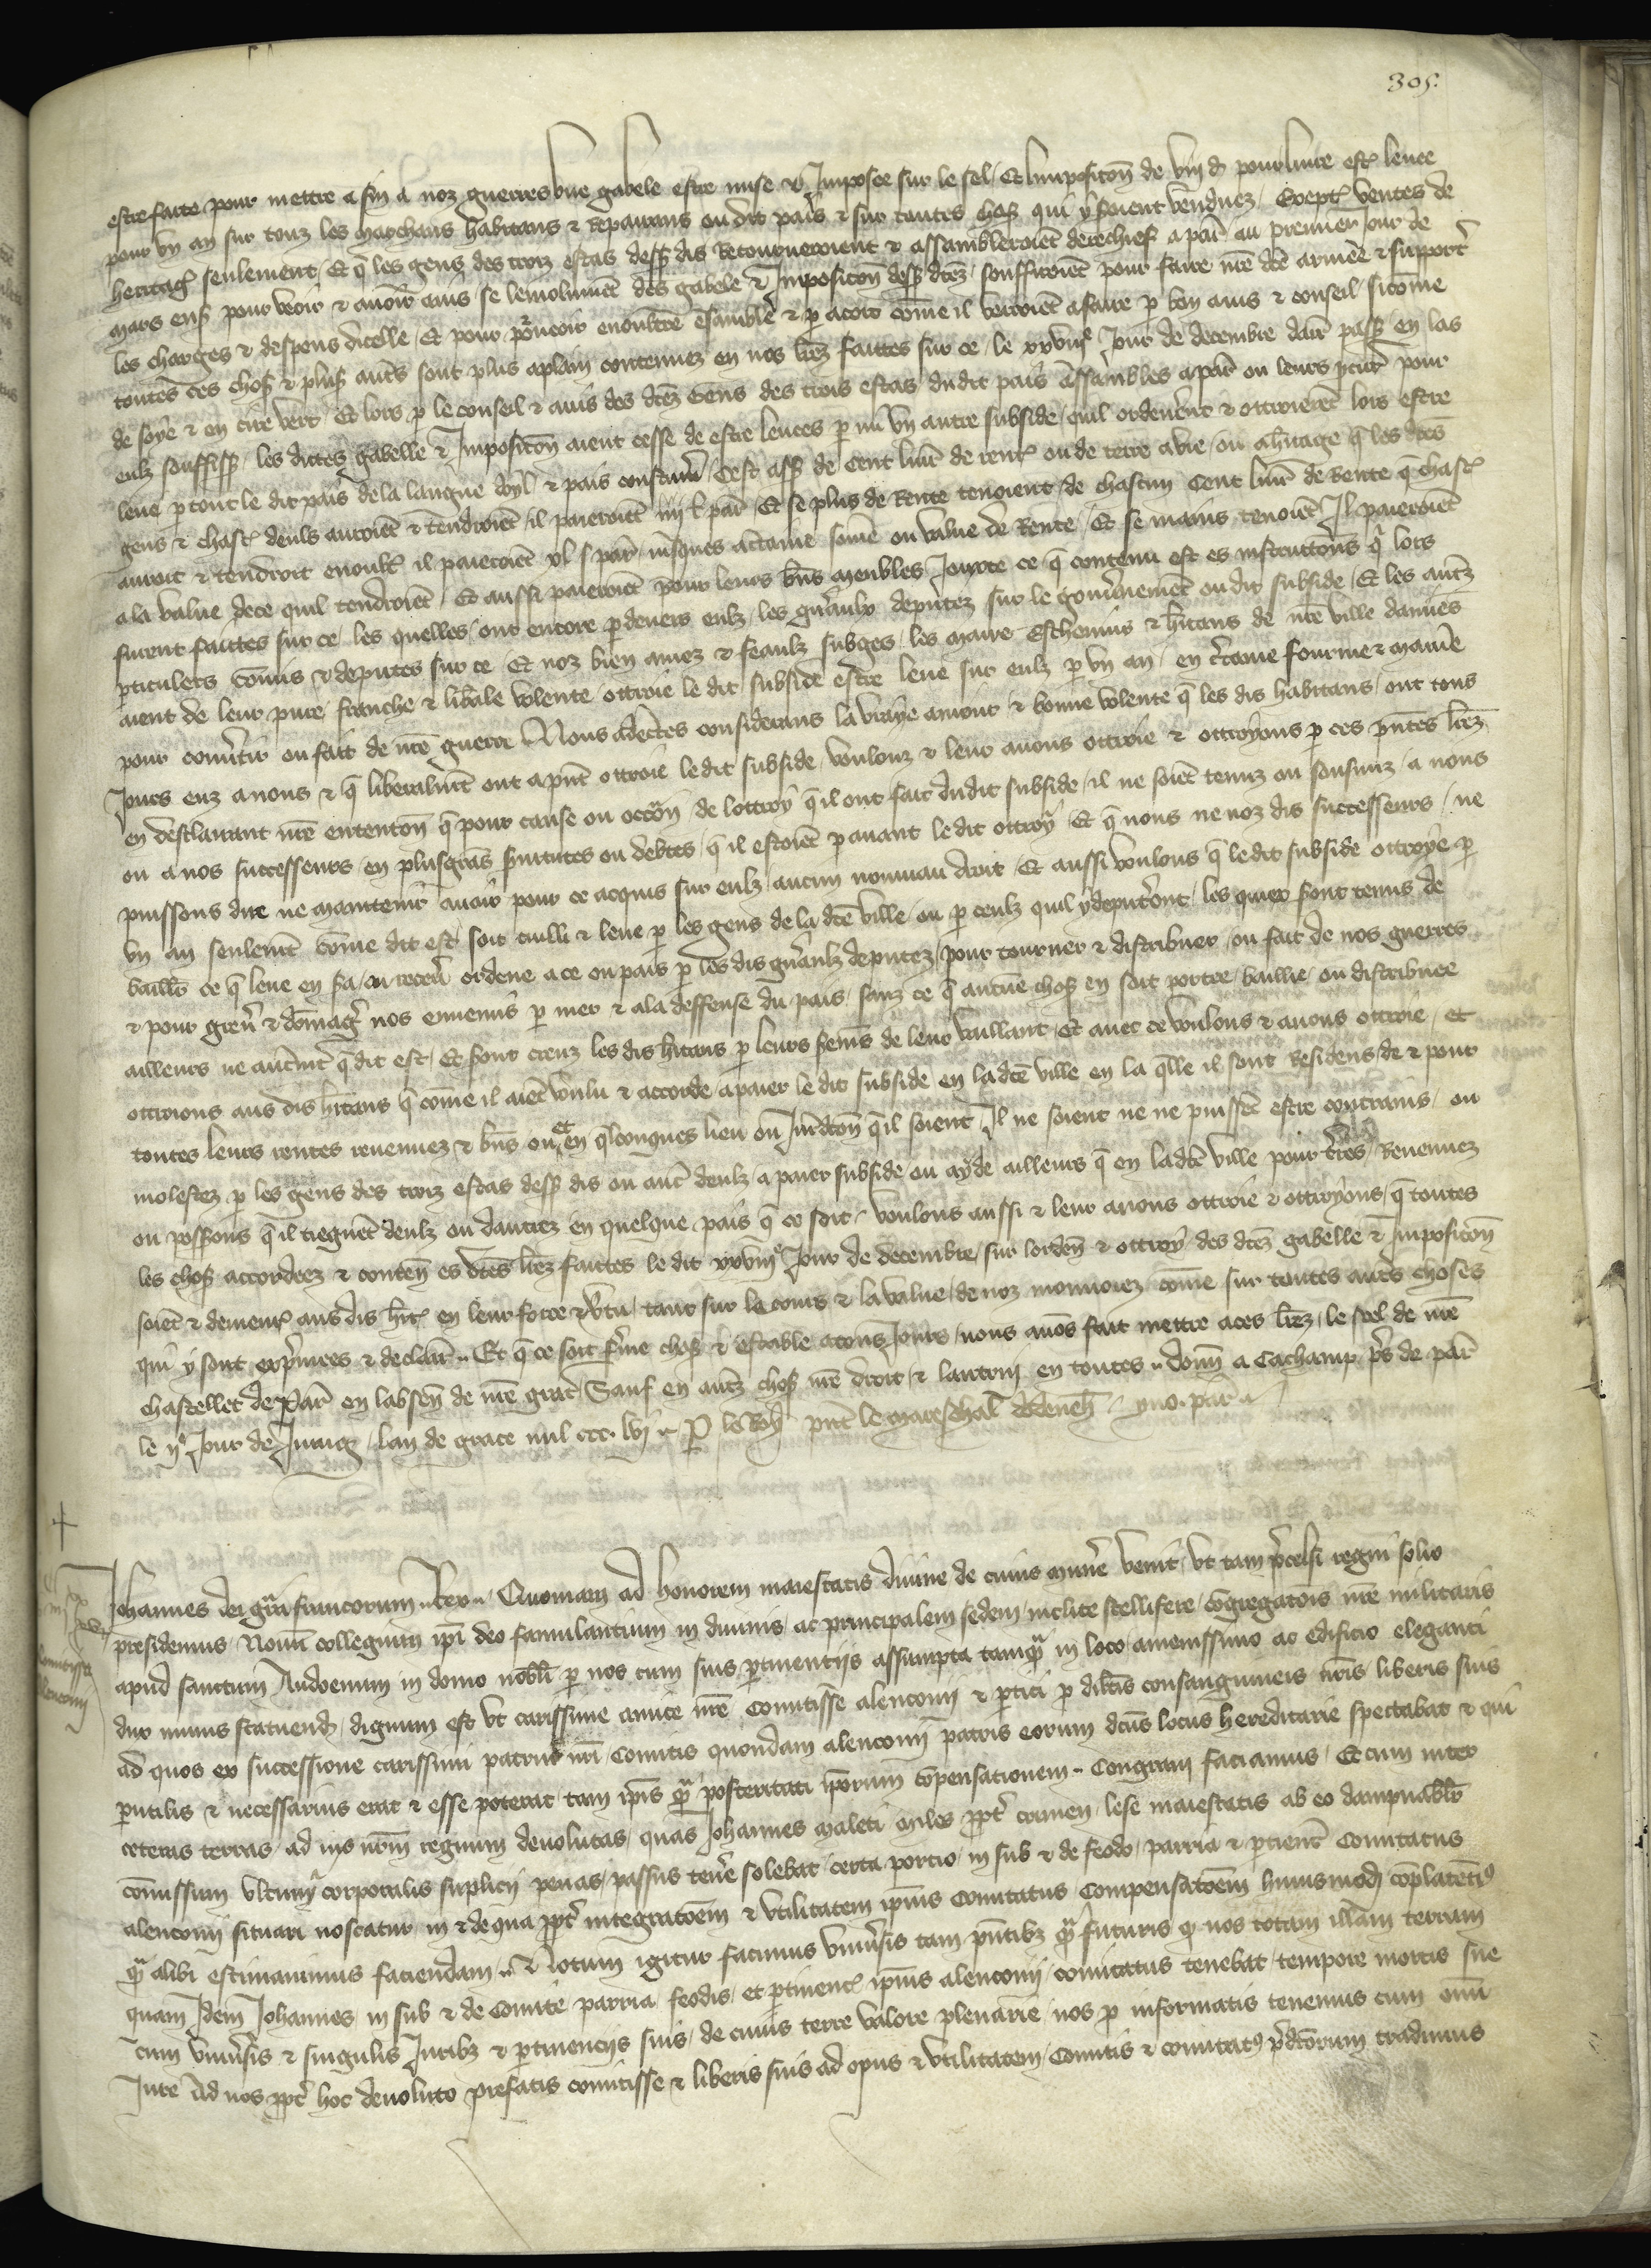 305.
estre faite pour mettre a fin a noz guerres une gabele estre mise et Imposee sur le sel / Et Imposicon de viii d pour livre estre levee
pour un an sur touz les marchans habitans et Repairans ou dit pais et sur toutes chos qui y seroient vendues / Excepte ventes de
heritage seulement / Et q les gens des troiz estas dess dis Retourneroient et assambleroient derechief a par au premier Jour de
mars ens pour veoir et avoir avis se lemolument des gabele et Imposicon dess dtez souffiroient pour faire nre dte armee et supporter
les charges et despens dicelle / Et pour pourveoir en oultre ensamble et p acort come il verroient a faire p bon avis et conseil / sicome
toutes ces chos et pluss autres sont plus a plain contenuez en nos lrez faites sur ce / le xxviiie Jour de decembre darr pass en las
de soye et en cire vert / Et lors p le conseil et avis des dtez Gens des trois estas du dit pais assambles a par ou leurs procur pour
eulz souffiss / les dictes gabelle et Imposicon aient cesse de estre levees p mi un autre subside / quil ordenerent et ottroierent lors estre
leve p tout le dit pais de la langue doyl et pais coustum / Cest ass de cent livr de rente ou de terre a vie / ou a heritage q les dtes
gens et chascun deuls auroient et tendroient il paieroient iiii l par Et se plus de Rente tenoient / de chascun Cent livr de Rente q chasc
auroit et tendroit en oultre il paieroient xl s par jusques a certaine some ou value de Rente / Et se mains tenoient Il paieroient
a la value de ce quil tendroient / Et aussi paieroient pour leurs bns meubles Jouxte ce q contenu est es instructions q lors
furent faittes sur ce / les quelles / ont encore p devers eulz / les generaulx deputez sur le gouvernement ou dit subside / Et les autrez
pticulers comis et deputes sur ce / Et noz bien amez et feaulz subges / les maire Eschevins et hitans de nre ville damiens
aient de leur pure / franche et liberale volente ottroie le dit subside estre leve sur eulz p un an / en certaine fourme et maniere
pour convertir ou fait de nre guerre / Nous adecertes considerans la vraye amour et bonne volente q les dis habitans / ont tous
Jours euz a nous et q liberalment ont a pnt ottroie le dit subside / voulonz et leur avons ottroie et ottroyons p ces pntes lrez
en desclairant nre entencon q pour cause ou occon de lottroy q il ont fait du dit subside / il ne soient tenuz ou sousmiz / a nous
ou a nos successeurs / en plusgrans servitutes ou debtes / q il estoient p avant le dit ottroy / Et q nous ne noz dis successeurs / ne
puissons dire ne maintenir avoir pour ce acquis sur eulz / aucun nouviau droit / Et aussi voulons q le dit subside ottroye p
un an seulement come dit est / soit cuilli et leve p les gens de la dte ville / ou p ceulz quil y deputeront / les quiex sont tenus de
baillier ce q leve en sa / au recev ordene a ce ou pais p les dis generaulz deputez / pour tourner et distribuer / ou fait de nos guerres
et pour grever et domager nos ennemis p mer et a la deffense du pais / sanz ce q aucune chos en soit portee / baillie / ou distribuee
ailleurs ne autrement q dit est / Et sont creuz les dis hitans p leurs sermens de leur vaillant / Et avec ce voulons et avons ottroie / et
ottroions aus dis hitans q come il aient voulu et accorde a paier le dit subside en la dte ville en la qlle il sont Residens de et pour
toutes leurs rentes revenuez et bns ou et en qlconques lieu ou Juridicon q il soient / Il ne soient ne ne puissent estre contrains / ou
molestez p les gens des troiz estas dess dis ou autr deulz a paier subside ou ayde ailleurs q en la dte ville pour terres / Revenuez
ou possions q il tiegnent deulz ou dautrez en quelque pais q ce soit / voulons aussi et leur avons ottroie et ottroyons / q toutes
les chos accordeez et conten es dtes lrez faites le dit xxviiie Jour de decembre / sur lorden et ottroy des dtez gabelle et Imposicon
soient et demeurent aus dis hit en leur force et vertu / tant sur le cours et la value de noz monnoiez / come sur toutes autres choses
qui y sont exprimees et declair .. Et q ce soit ferme chos et estable a tous Jours / nous avons fait mettre a ces lrez / le seel de nre
chastellet de Par en labsen de nre grant Sauf en autrez chos nre droit / et lautruy en toutes .. donn a Cachamp pres de par
le iie Jour de Juing / lan de grace mil ccc. lvi .. P le Roy pnt le mareschal dodeneh / yvo. par ..
Johannes dei gra francorum Rex .. Quoniam ad honorem maiestatis divine de cuius munere venit / ut tam precelsi regni solio
presidemus / Novum collegium ipi deo famulantium in divinis / ac principalem sedem / inclite stellifere / cogregacois nre militaris
apud sanctum Audoenum in domo nobli p nos cum suis ptinentiis assumpta tamq in loco amenissimo ac edificio eleganti
dux imus statuend / dignum est ut carissime amice nre Comitisse alenconii et ptici p dilcis consanguineis nris liberis suis
ad quos ex successione carissimi patrui nri Comitis quondam alenconii patris eorum dcus locus hereditarie spectabat et qui
putilis et necessarius erat et esse poterat / tam ipis q posteritati ipsorum compensationem .. Congruam faciamus / Et cum inter
ceteras terras / ad ius nrm regium devolutas / quas Johannes maleti miles ppt crimen / lese maiestatis ab eo dampnablr
comissum ultimi corporalis suplicii penas passus tenere solebat / certa porcio in sub et de feodo / parria et ptinent Comitatus
alenconii situari noscatur in et de qua ppt integracoem et utilitatem ipius Comitatus Compensacoem huiusmodi
q alibi estimavimus faciendam .. Notum igitur facimus universis tam pntibz q futuris q nos totam illam terram
quam Idem Johannes in sub et de Comite parria / feodis / et ptinent ipius alenconii comitatus tenebat tempore mortis sue
Cum universis et singulis Juribz et ptinenciis suis / de cuius terre valore plenarie nos p informatis tenemus cum omi
Jure ad nos ppt hoc devoluto prefatis comitisse et liberis suis ad opus et utilitatem / Comitis et comitatus predcorum tradimus